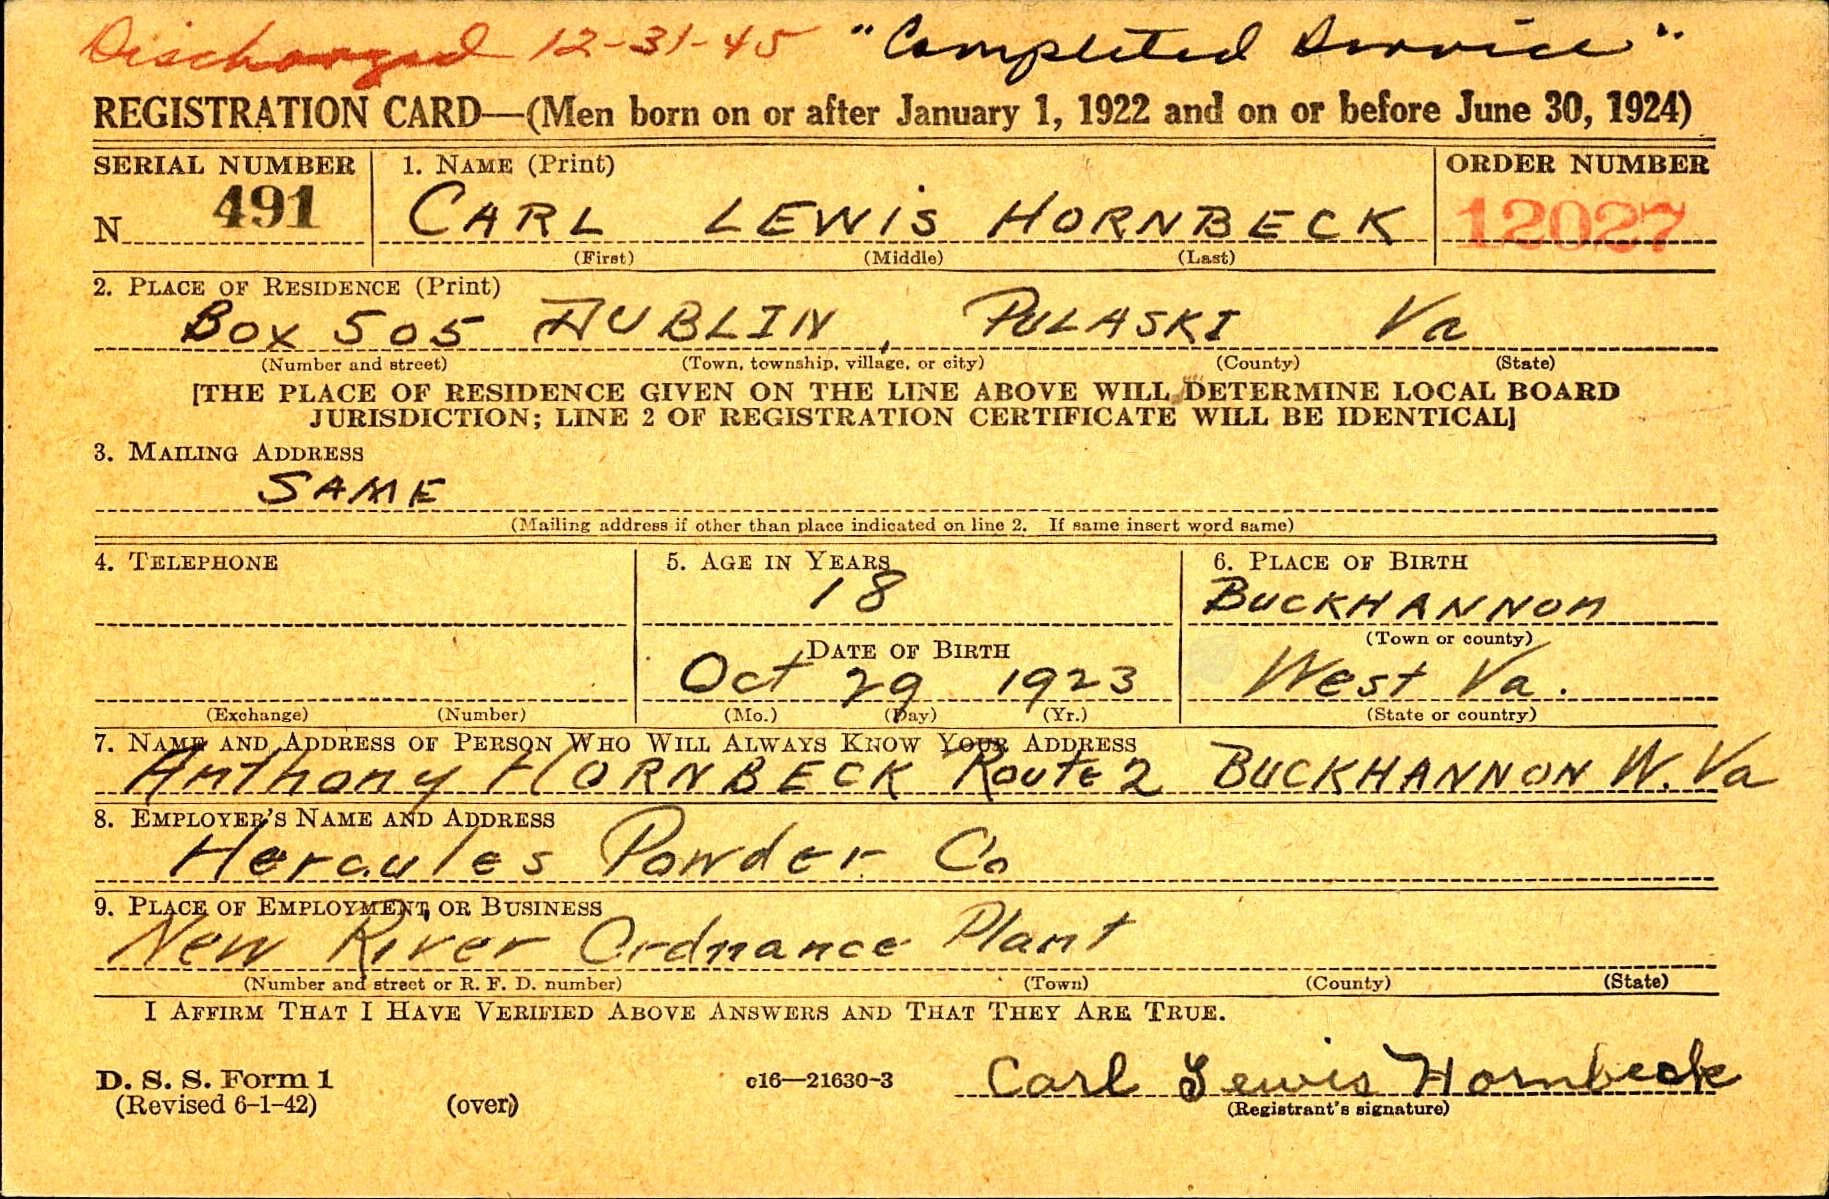 Discharged 12-31-45 "Completed Service"
REGISTRATION CARD—(Men born on or after January 1, 1922 and on or before June 30, 1924)
SERIAL NUMBER 1. NAME (Print) ORDER NUMBER
N 491 CARL LEWIS HORNBECK 12027
(First) (Middle) (Last)
2. PLACE OF RESIDENCE (Print)
BOX 505 DUBLIN, PULASKI Va
(Number and street) (Town, township, village, or city) (County) (State)
[THE PLACE OF RESIDENCE GIVEN ON THE LINE ABOVE WILL DETERMINE LOCAL BOARD
JURISDICTION; LINE 2 OF REGISTRATION CERTIFICATE WILL BE IDENTICAL]
3. MAILING ADDRESS
SAME
(Mailing address if other than place indicated on line 2. If same insert word same)
4. TELEPHONE 5. AGE IN YEARS 6. PLACE OF BIRTH
18 BUCKHANNON
DATE OF BIRTH (Town or county)
Oct 29 1923 West Va.
(Exchange) (Number) (Mo.) (Day) (Yr.) (State or country)
7. NAME AND ADDRESS OF PERSON WHO WILL ALWAYS KNOW YOUR ADDRESS
Anthony HORNBECK Route 2 BUCKHANNON W. Va
8. EMPLOYER'S NAME AND ADDRESS
Hercules Powder Co
9. PLACE OF EMPLOYMENT OR BUSINESS
New River Ordnance Plant
(Number and street or R. F. D. number) (Town) (County) (State)
I AFFIRM THAT I HAVE VERIFIED ABOVE ANSWERS AND THAT THEY ARE TRUE.
D. S. S. Form 1 c16—21630-3 Carl Lewis Hornbeck
(Revised 6-1-42) (over) (Registrant's signature)